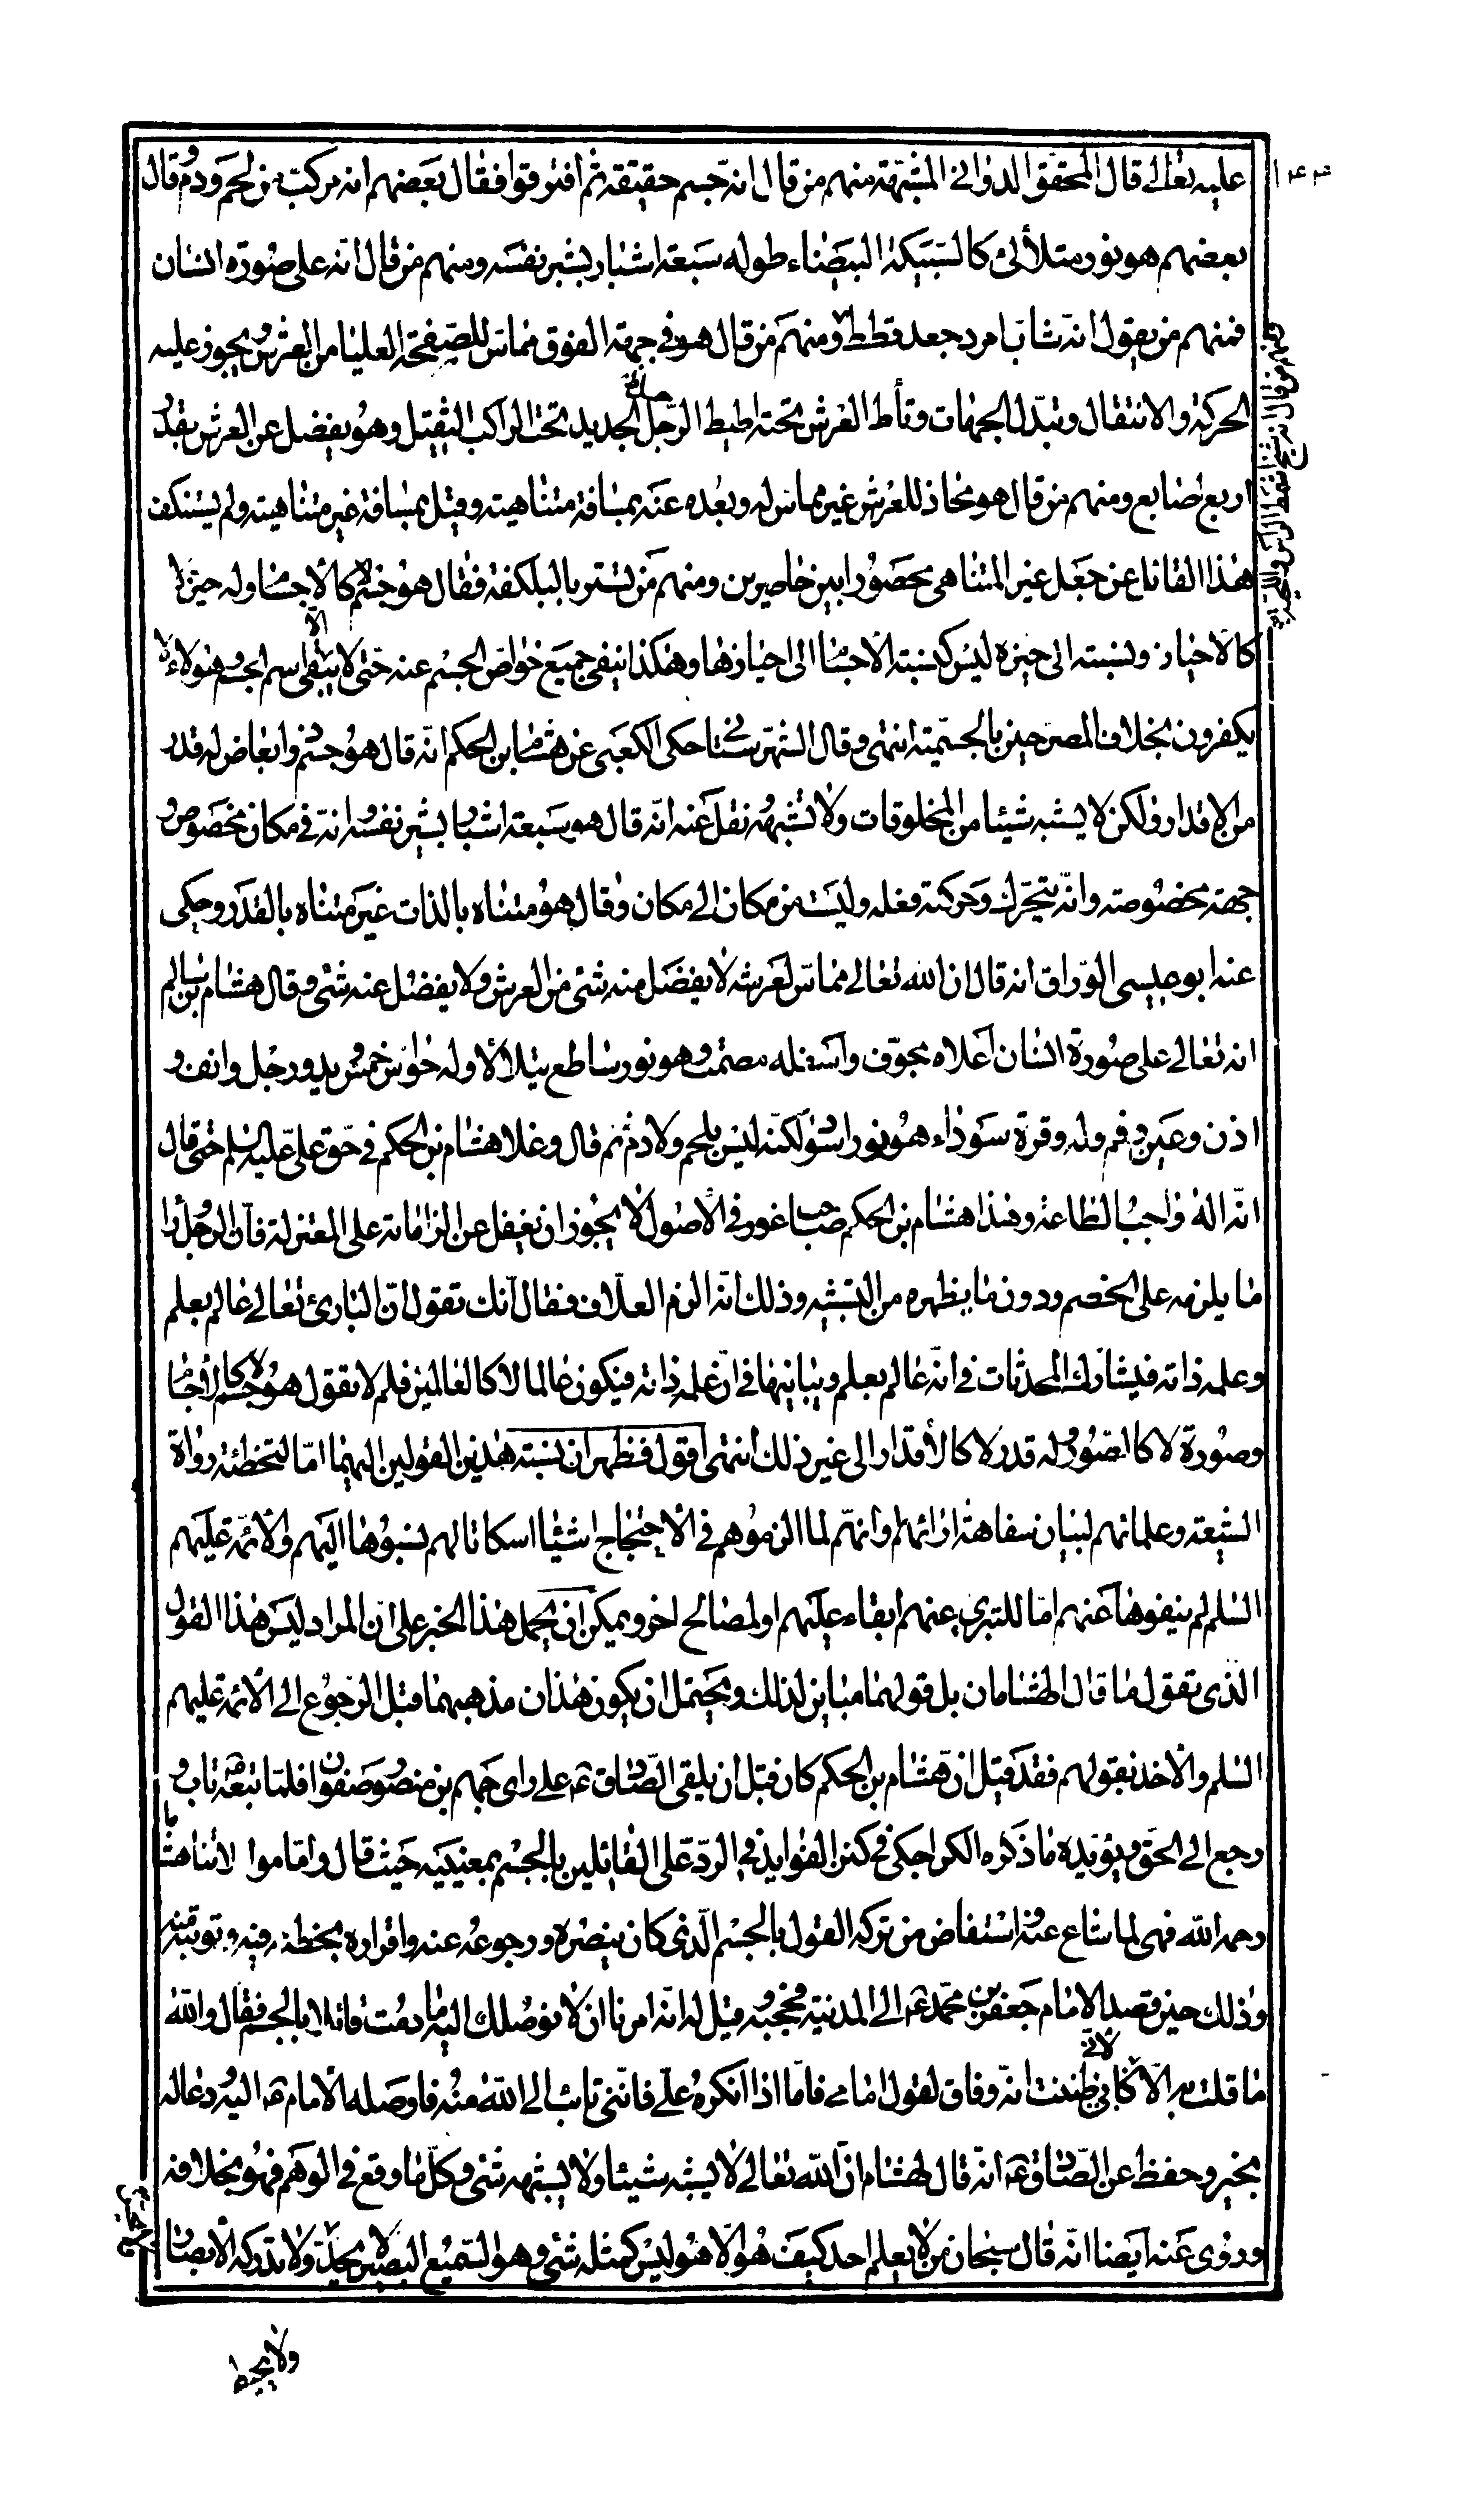 ١٤٣
عليه تعالى قال المحقق الدواني المشبهة منهم من قال انه جسم حقيقة ثم افترقوا فقال بعضهم انه مركب من لحم ودم وقال
بعضهم هو نور متلألئ كالسبيكة البيضاء طوله سبعة اشبار بشبر نفسه ومنهم من قال انه على صورة انسان
فمنهم من يقول انه شاب امرد جعد قطط ومنهم من قال هو في جهة الفوق مماس للصفحة العليا من العرش ويجوز عليه
الحركة والانتقال وتبدل الجهات وتأط العرش تحته اطيط الرحل الجديد تحت الراكب الثقيل وهو يفضل عن العرش بقدر
اربع اصابع ومنهم من قال هو محاذ للعرش غير مماس له وبعده عنه بمسافة متناهية وقيل بمسافة غير متناهية ولم يستنكف
هذا القائل عن جعل غير المتناهي محصورا بين حاصرين ومنهم من تستر بالبلكفة فقال هو جسم لا كالاجسام وله حيز لا
كالاحياز ونسبته الى حيزه ليس كنسبة الاجسام الى احيازها وهكذا ينفي جميع خواص الجسم عنه حتى لا يبقى الا اسم الجسم وهؤلاء لا
يكفرون بخلاف المصرحين بالجسمية انتهى وقال الشهرستاني حكى الكعبي عن هشام بن الحكم انه قال هو جسم ذو ابعاض له قدر
من الاقدار ولكن لا يشبه شيئا من المخلوقات ولا تشبهه ونقل عنه انه قال هو سبعة اشبار بشبر نفسه وانه في مكان مخصوص و
جهة مخصوصة وانه يتحرك وحركته فعله وليست من مكان الى مكان وقال هو متناه بالذات غير متناه بالقدر وحكى
عنه ابو عيسى الوراق انه قال ان الله تعالى مماس لعرشه لا يفضل منه شئ من العرش ولا يفضل عنه شئ وقال هشام بن سالم
انه تعالى على صورة انسان اعلاه مجوف واسفله مصمت وهو نور ساطع يتلألأ وله حواس خمس ويد ورجل وانف و
اذن وعين وفم وله وفرة سوداء هو نور اسود لكنه ليس بلحم ولا دم ثم قال وغلا هشام بن الحكم في حق علي عليه السلم حتى قال
انه اله واجب الطاعة وهذا هشام بن الحكم صاحب غور في الاصول لا يجوز ان يغفل عن الزاماته على المعتزلة فان الرجل وراء
ما يلزمه على الخصم ودون ما يظهره من التشبيه وذلك انه الزم العلاف فقال انك تقول ان البارئ تعالى عالم بعلم
وعلمه ذاته فيشارك المحدثات في انه عالم بعلم ويباينها في ان علمه ذاته فيكون عالما لا كالعالمين فلم لا تقول هو جسم لا كالاجسام
وصورة لا كالصور وله قدر لا كالأقدار الى غير ذلك انتهى اقول فظهر ان نسبة هذين القولين اليهما اما لتخطئة رواة
الشيعة وعلمائهم لبيان سفاهة آرائهم او انهم لما الزموهم في الاحتجاج اشياء اسكاتا لهم نسبوها اليهم والائمة عليهم
السلم لم ينفوها عنهم اما للتبري عنهم ابقاء عليهم او لمصالح اخر ويمكن ان يحمل هذا الخبر على ان المراد ليس هذا القول
الذي تقول ما قال الهشامان بل قولهما مباين لذلك ويحتمل ان يكون هذان مذهبهما قبل الرجوع الى الائمة عليهم
السلم والأخذ بقولهم فقد قيل ان هشام بن الحكم كان قبل ان يلقى الصادق ع على راي جهم بن صفوان فلما تبعه ع تاب و
رجع الى الحق ويؤيده ما ذكره الكراجكي في كنز الفوايد في الرد على القائلين بالجسم بمعنييه حيث قال واما موالاتنا هشاما
رحمه الله فهي لما شاع عنه واستفاض من تركه القول بالجسم الذي كان ينصره ورجوعه عنه واقراره بخطئه فيه وتوبته منه
وذلك حين قصد الامام جعفر بن محمد ع الى المدينة فحجبه وقيل له انه امرنا ان لا نوصلك اليه ما دمت قائلا بالجسم فقال والله
ما قلت به الا لاني ظننت انه وفاق لقول امامي فاما اذا انكره علي فانني تائب الى الله منه فاوصله الامام ع اليه ودعا له
بخير وحفظ عن الصادق ع انه قال لهشام ان الله تعالى لا يشبه شيئا ولا يشبهه شئ وكل ما وقع في الوهم فهو بخلافه
وروي عنه ايضا انه قال سبحان من لا يعلم احد كيف هو الا هو ليس كمثله شئ وهو السميع البصير لا يحد ولا تدركه الابصار
ولا يحيط